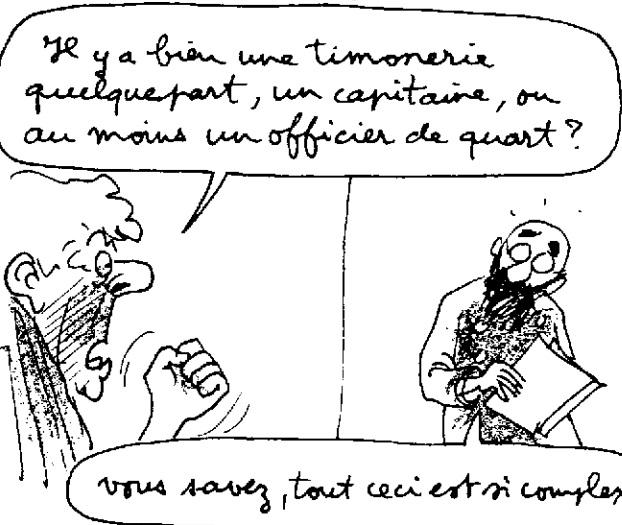 Il y a bien une timonerie
quelquepart, un capitaine, ou
au moins un officier de quart ?
vous savez, tout ceci est si complex